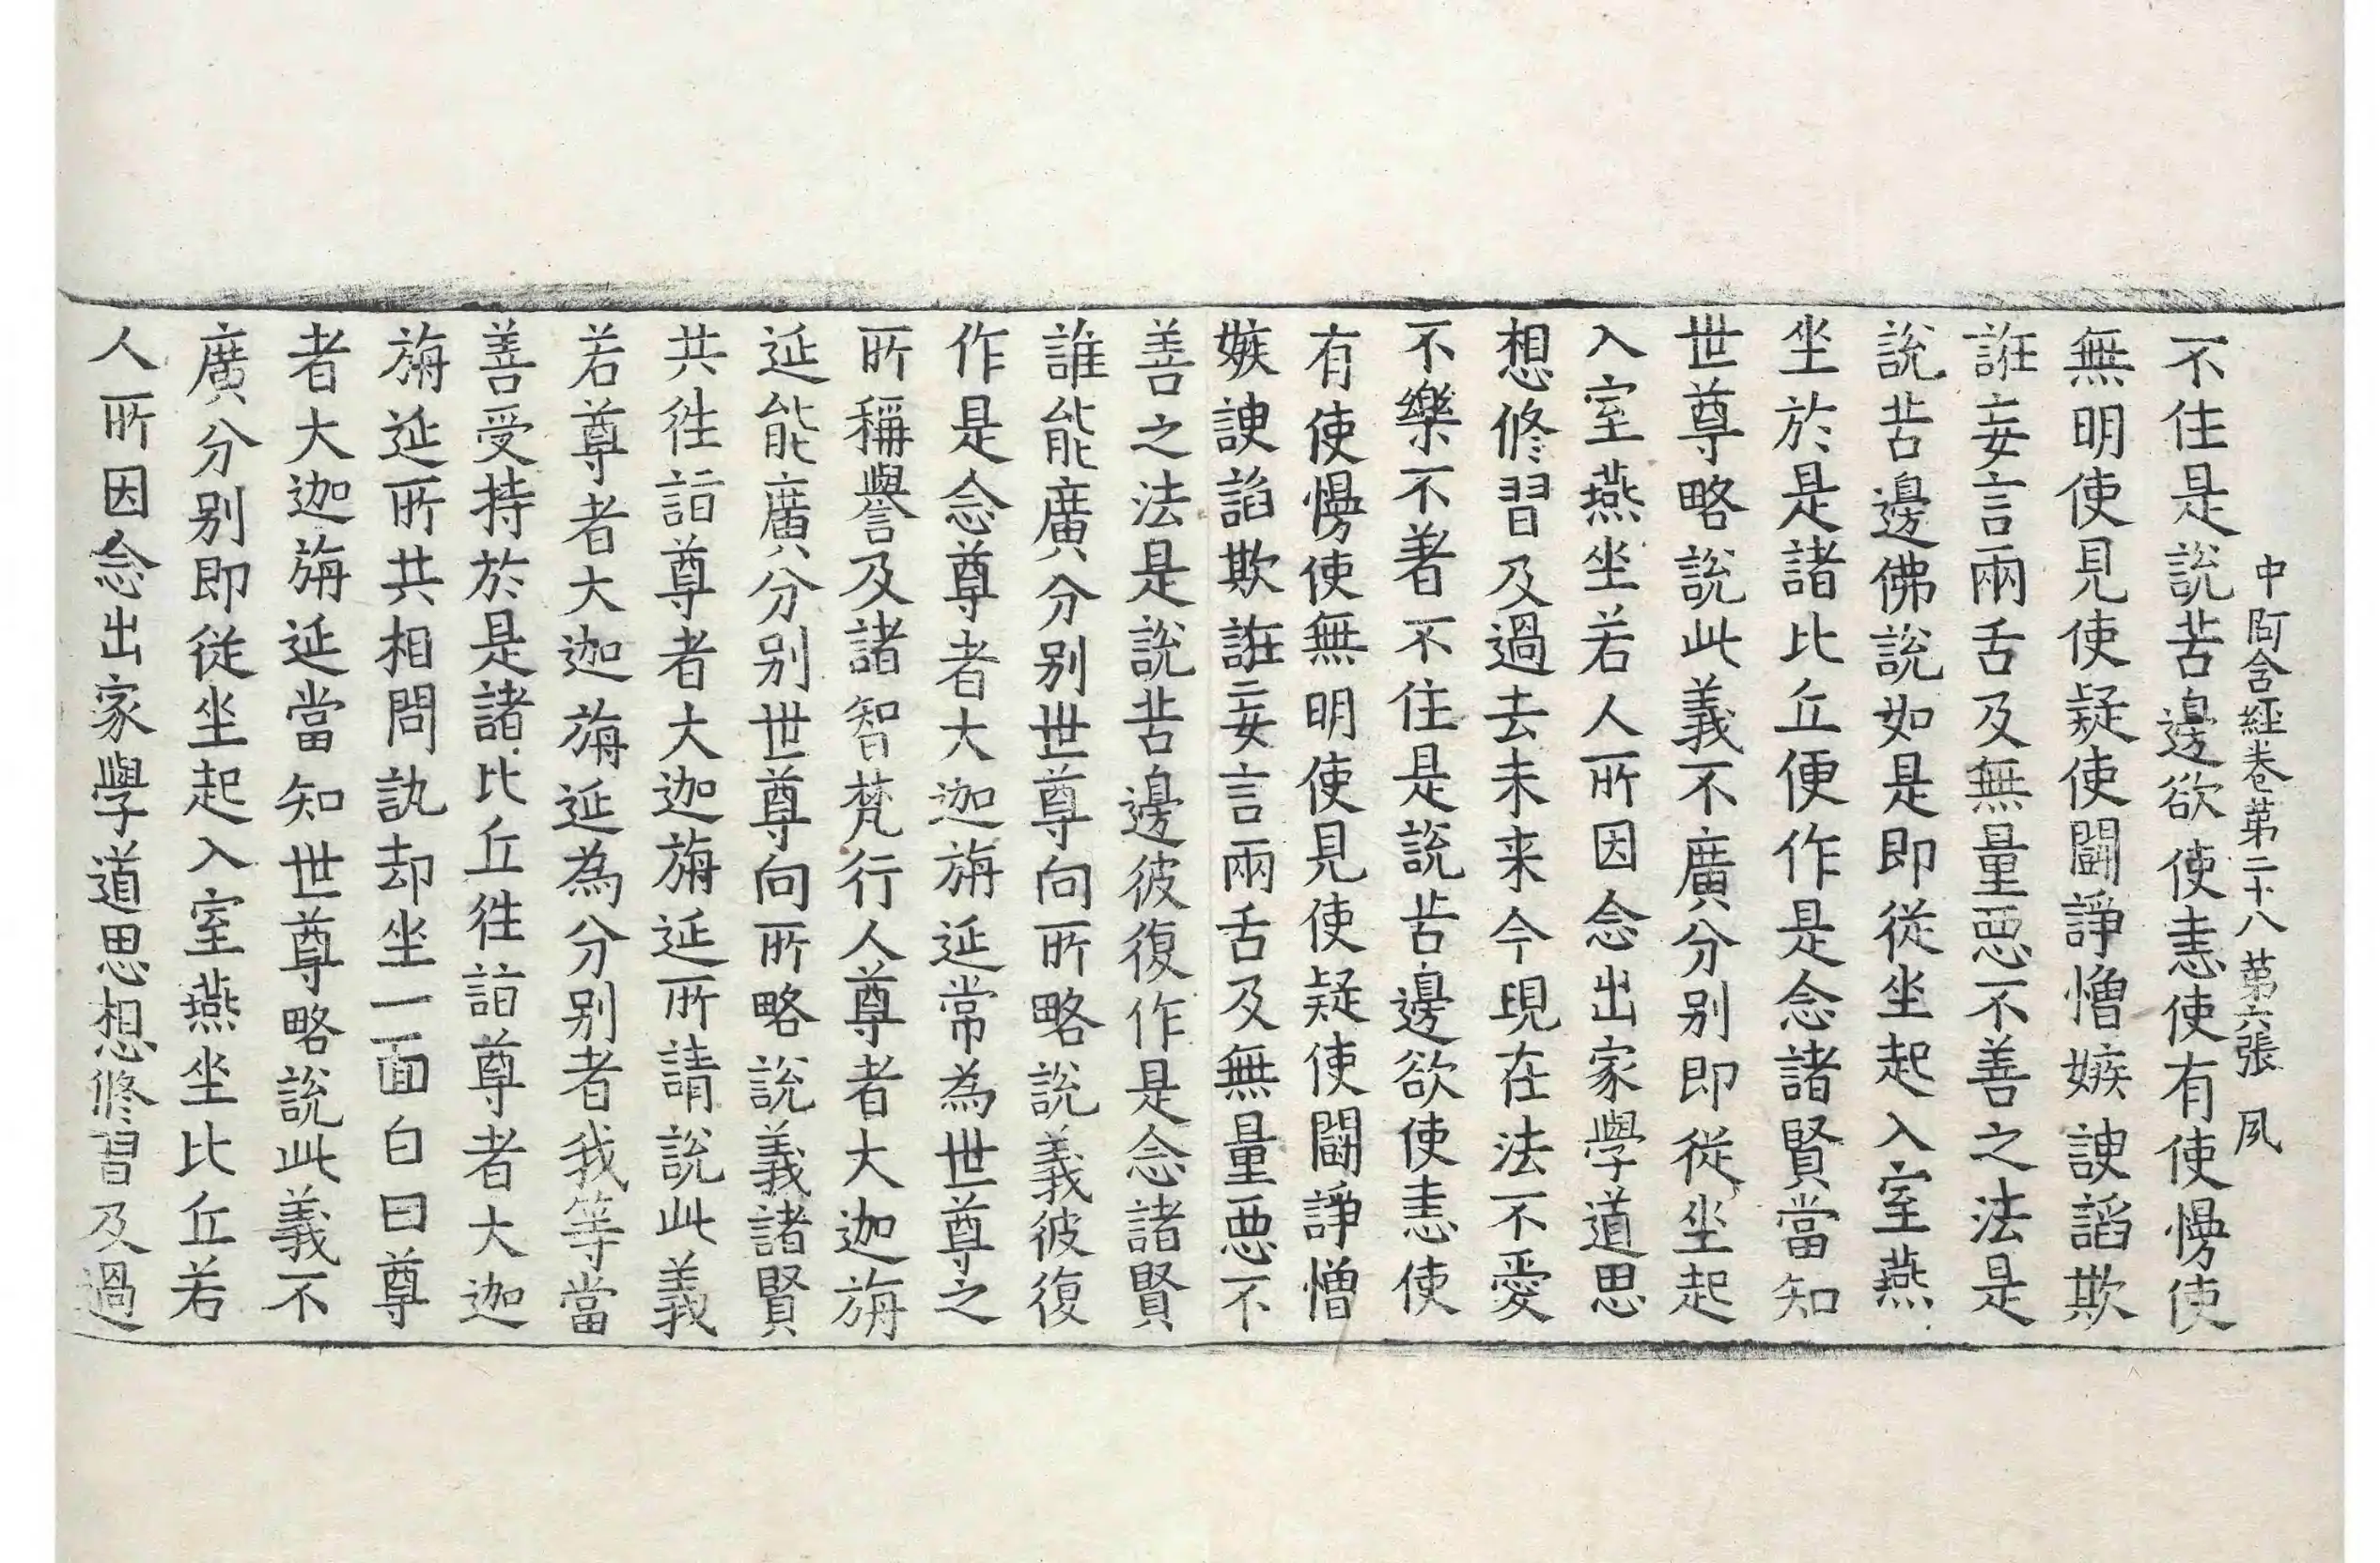 中阿含經卷第二十八　第六張　夙
不住是說苦邊欲使恚使有使慢使
無明使見使疑使闘諍憎嫉諛諂欺
誑妄言兩舌及無量惡不善之法是
說苦邊佛說如是即從坐起入室燕
坐於是諸比丘便作是念諸賢當知
世尊略說此義不廣分別即從坐起
入室燕坐若人所因念出家學道思
想修習及過去未来今現在法不愛
不樂不著不住是說苦邊欲使恚使
有使慢使無明使見使疑使闘諍憎
嫉諛諂欺誑妄言兩舌及無量惡不
善之法是說苦邊彼復作是念諸賢
誰能廣分別世尊向所略說義彼復
作是念尊者大迦旃延常為世尊之
所稱譽及諸智梵行人尊者大迦旃
延能廣分別世尊向所略說義諸賢
共往詣尊者大迦旃延所請說此義
若尊者大迦旃延為分別者我等當
善受持於是諸比丘往詣尊者大迦
旃延所共相問訊却坐一面白曰尊
者大迦旃延當知世尊略說此義不
廣分別即從坐起入室燕坐比丘若
人所因念出家學道思想修習及過